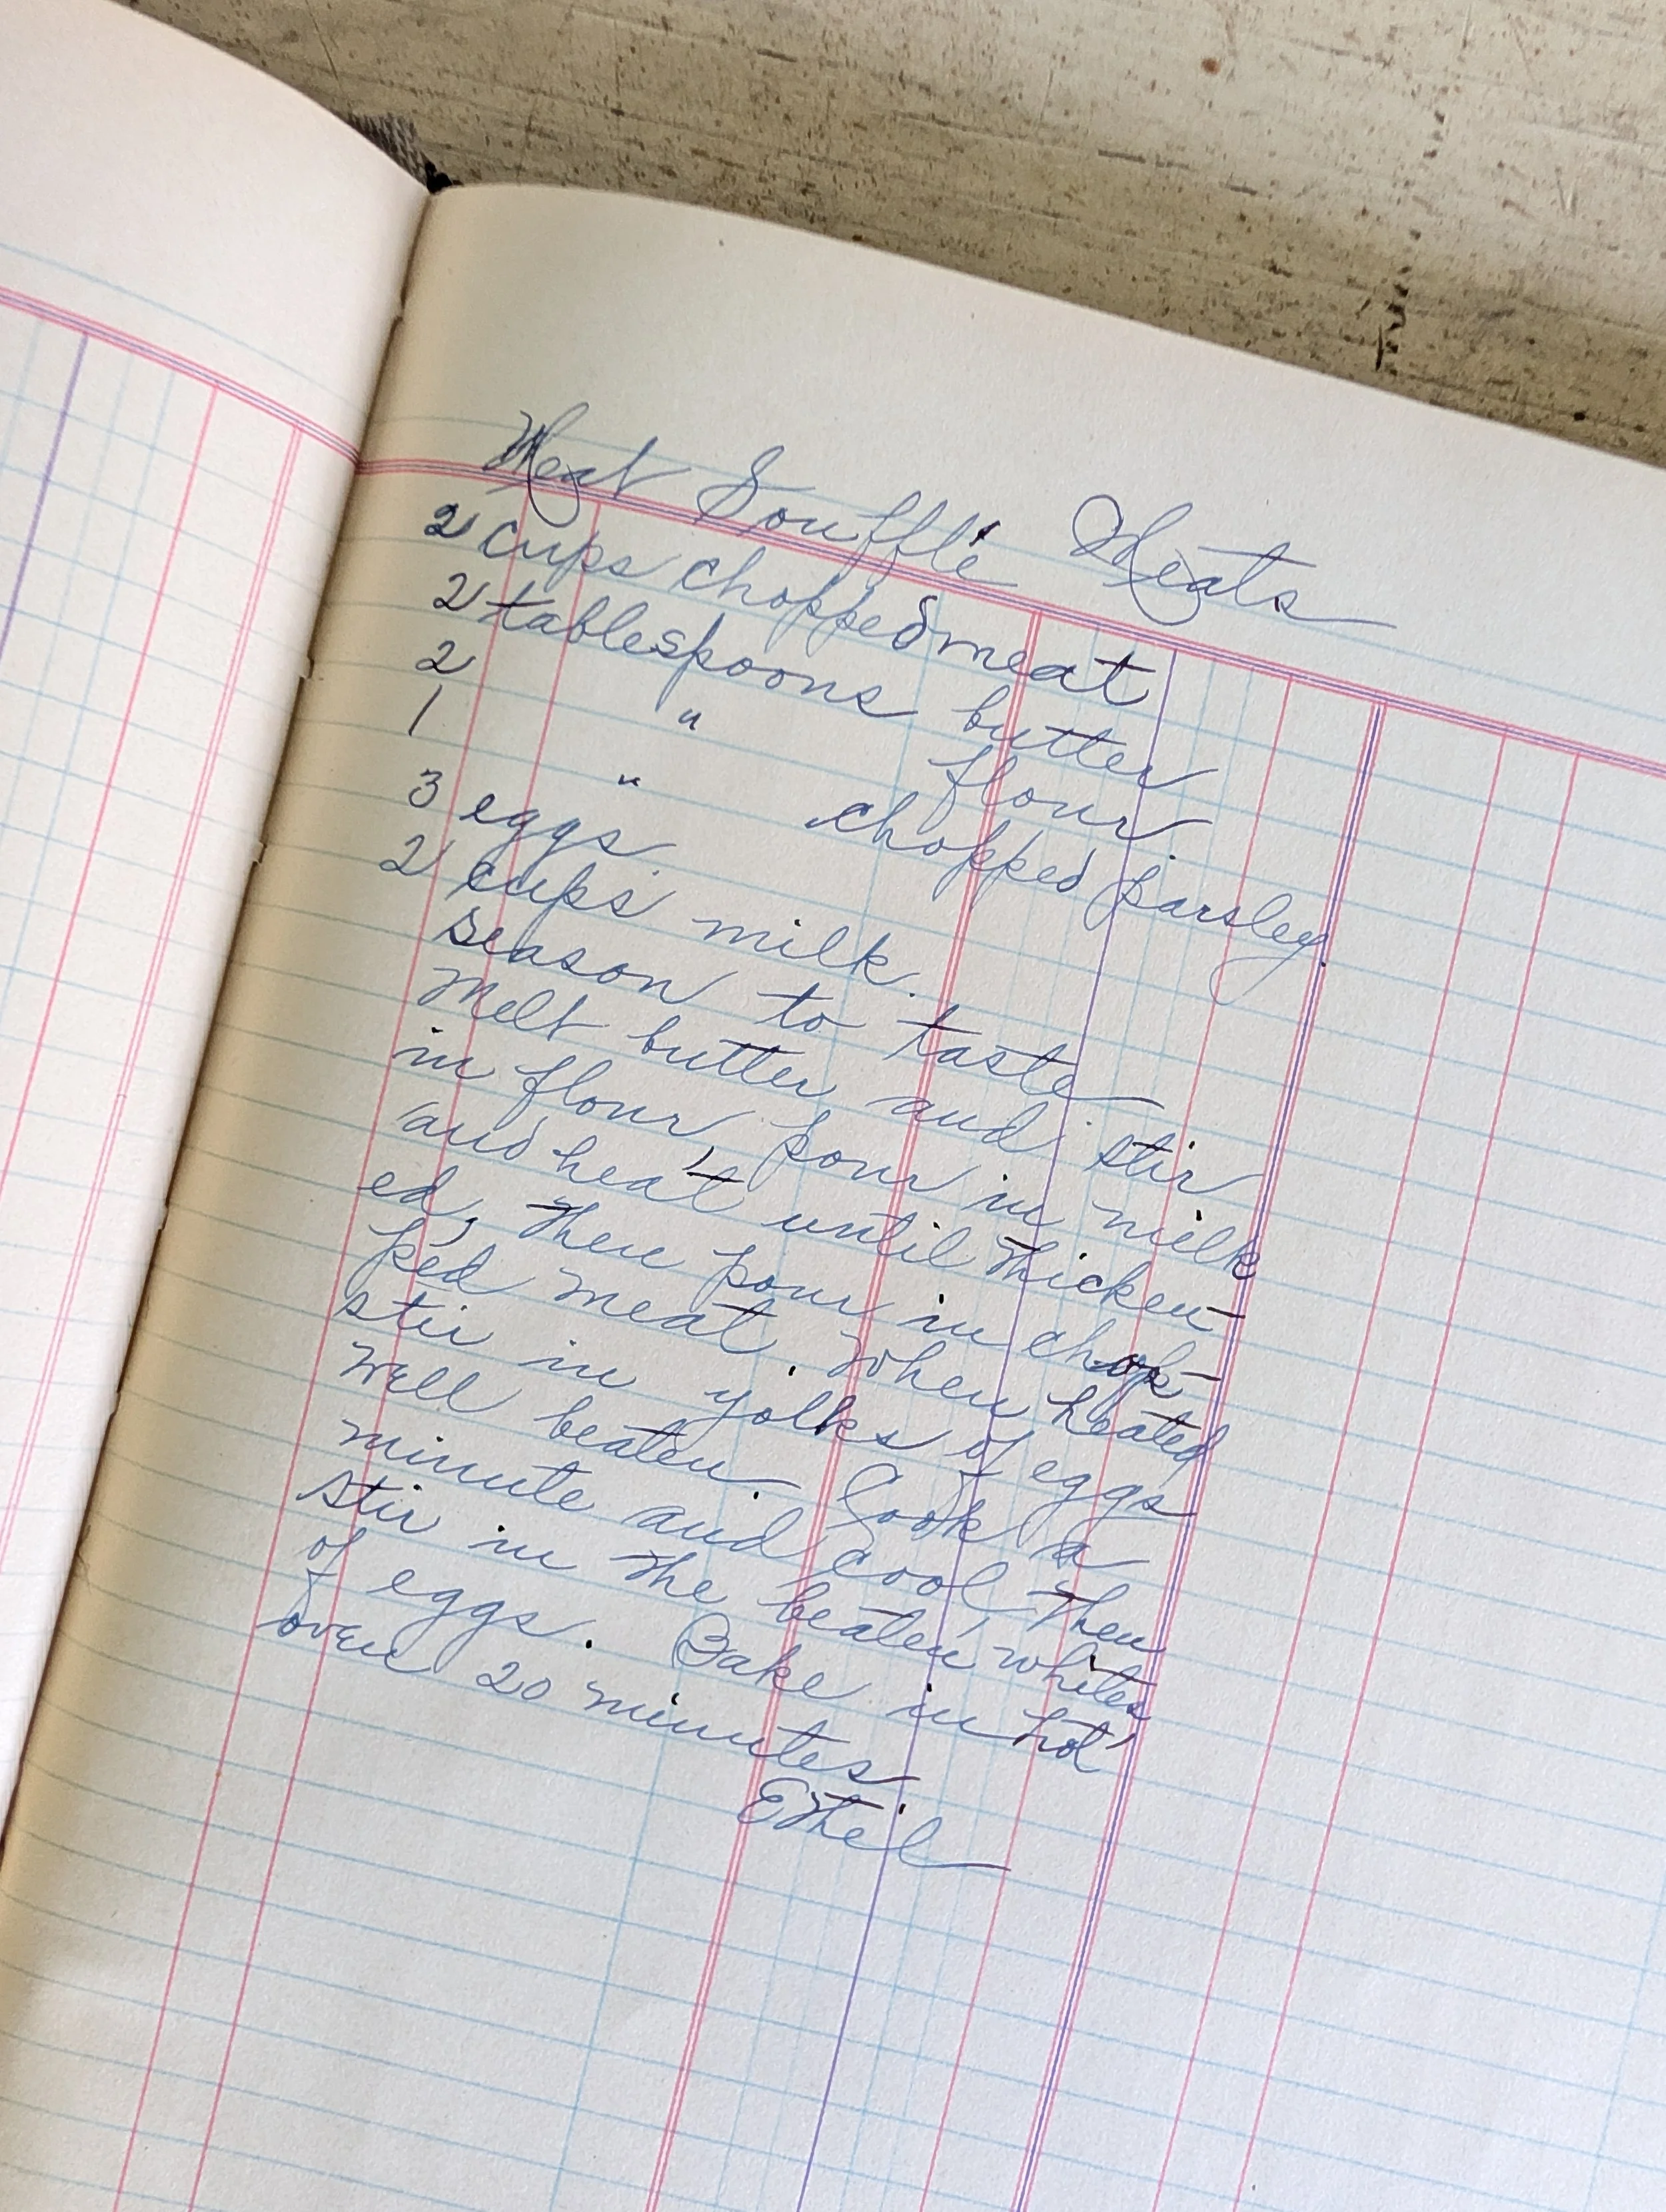 Meat Soufflé Meats
2 cups chopped meat
2 tablespoons butter
2 " flour
1 " chopped parsley.
3 eggs
2 cups milk.
season to taste
Melt butter and stir
in flour, pour in milk
and heat until thicken-
ed, then pour in chop-
ped meat. When heated
stir in yolks of eggs
well beaten Cook a
minute and cool then
stir in the beaten whites
of eggs. Bake in hot
oven 20 minutes
Ethel